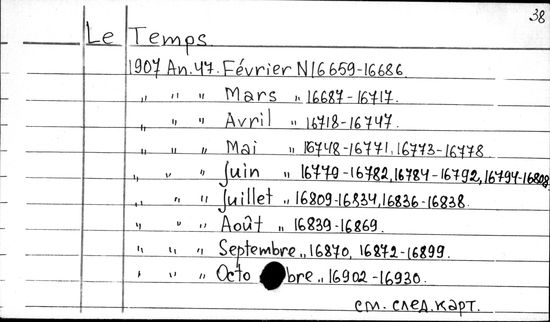 38
Le Temps
1907 An. 47. Février N16659-16686
„ „ „ Mars „ 16687-16717.
„ „ „ Avril „ 16718-16747.
„ „ „ Mai „ 16748-16771, 16773-16778
„ „ „ Juin „ 16779-16782, 16784-16792, 16794-16808
„ „ „ Juillet „ 16809-16834, 16836-16838.
„ „ „ Août „ 16839-16869.
„ „ „ Septembre „ 16870, 16872-16899.
„ „ „ Octobre „ 16902-16930.
см. след. карт.